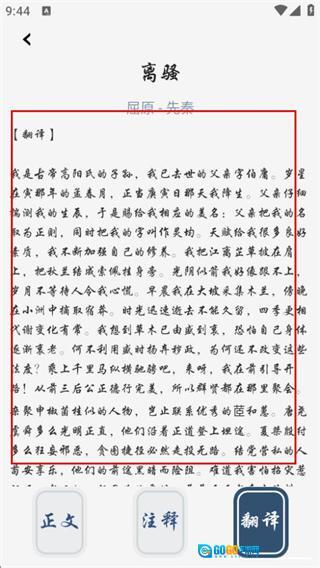 9:44
离骚
屈原 - 先秦
【翻译】
我是古帝高阳氏的子孙，我已去世的父亲字伯庸。岁星
在寅那年的孟春月，正当庚寅日那天我降生。父亲仔细
揣测我的生辰，于是赐给我相应的美名：父亲把我的名
取为正则，同时把我的字叫作灵均。天赋给我很多良好
素质，我不断加强自己的修养。我把江离芷草披在肩
上，把秋兰结成索佩挂身旁。光阴似箭我好像跟不上，
岁月不等待人令我心慌。早晨我在大坡采集木兰，傍晚
在小洲中摘取宿莽。时光迅速逝去不能久留，四季更相
代谢变化有常。我想到草木已由盛到衰，恐怕自己身体
逐渐衰老。何不利用盛时扬弃秽政，为何还不改变这些
法度？乘上千里马纵横驰骋吧，来呀，我在前引导开
路！从前三后公正德行完美，所以群贤都在那里聚会。
杂聚申椒菌桂似的人物，岂止联系优秀的茝和蕙。唐尧
虞舜多么光明正直，他们沿着正道登上坦途。夏桀殷纣
多么狂妄邪恶，贪图捷径必然走投无路。结党营私的人
苟安享乐，他们的前途黑暗而险阻。难道我害怕招灾惹
正文
注释
翻译
GOGO